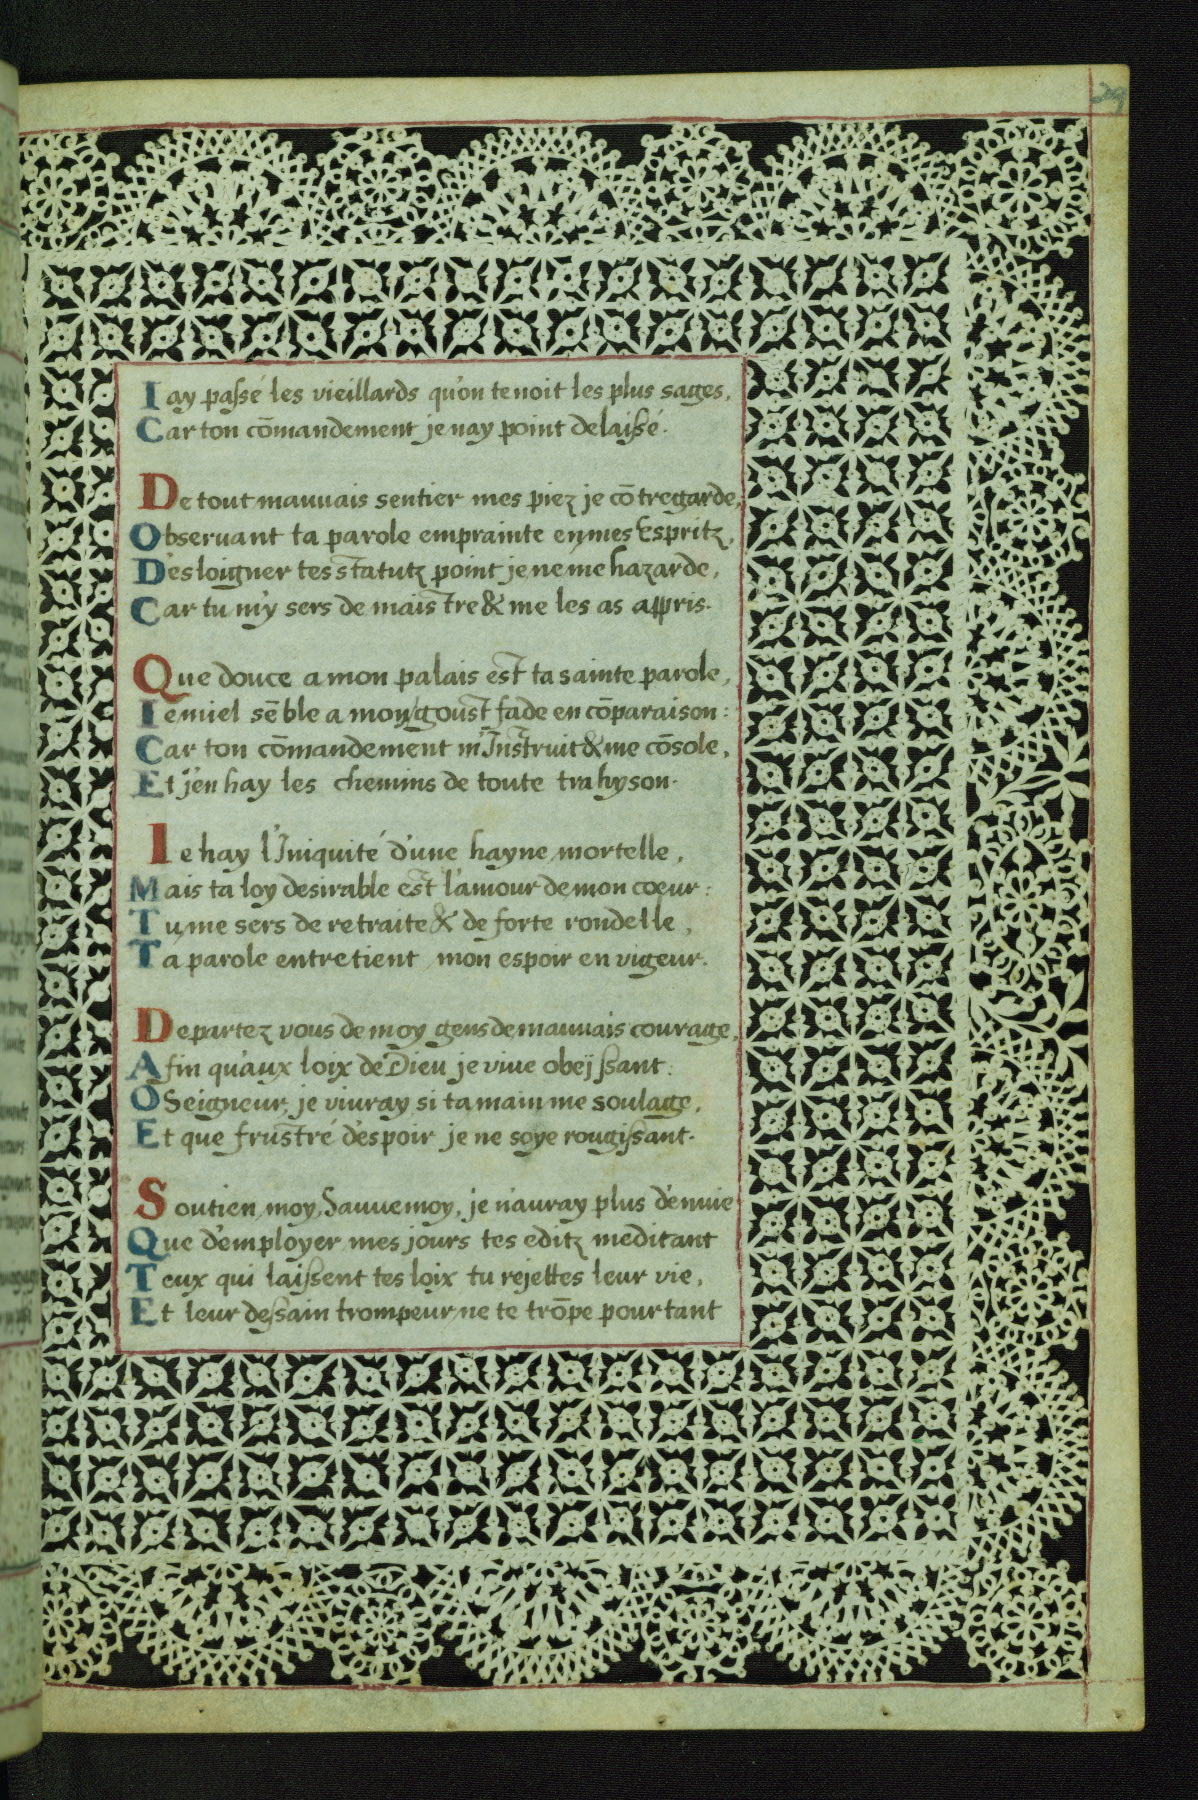 29
Iay passé les vieillards qu'on tenoit les plus sages,
Car ton cōmandement je nay point delaissé.
De tout mauuais sentier mes piez je cōtregarde,
Obseruant ta parole emprainte en mes Espritz,
D'esloigner tes statutz point je ne me hazarde,
Car tu m'y sers de maistre & me les as appris.
Que douce a mon palais est ta sainte parole,
Le miel sēble a mon goust fade en cōparaison:
Car ton cōmandement m'Instruit & me cōsole,
Et j'en hay les chemins de toute trahyson.
Ie hay l'Iniquité d'une hayne mortelle,
Mais ta loy desirable est l'amour de mon coeur:
Tu me sers de retraite & de forte rondelle,
Ta parole entretient mon espoir en vigeur.
Departez vous de moy gens de mauuais courage,
Afin qu'aux loix de Dieu je viue obeïssant:
O Seigneur je viuray si ta main me soulage,
Et que frustré d'espoir je ne soye rougissant.
Soutien moy, Sauue moy, je n'auray plus d'enuie
Que d'employer mes jours tes editz meditant
Teux qui laissent tes loix tu rejettes leur vie,
Et leur dessain trompeur ne te trōpe pourtant